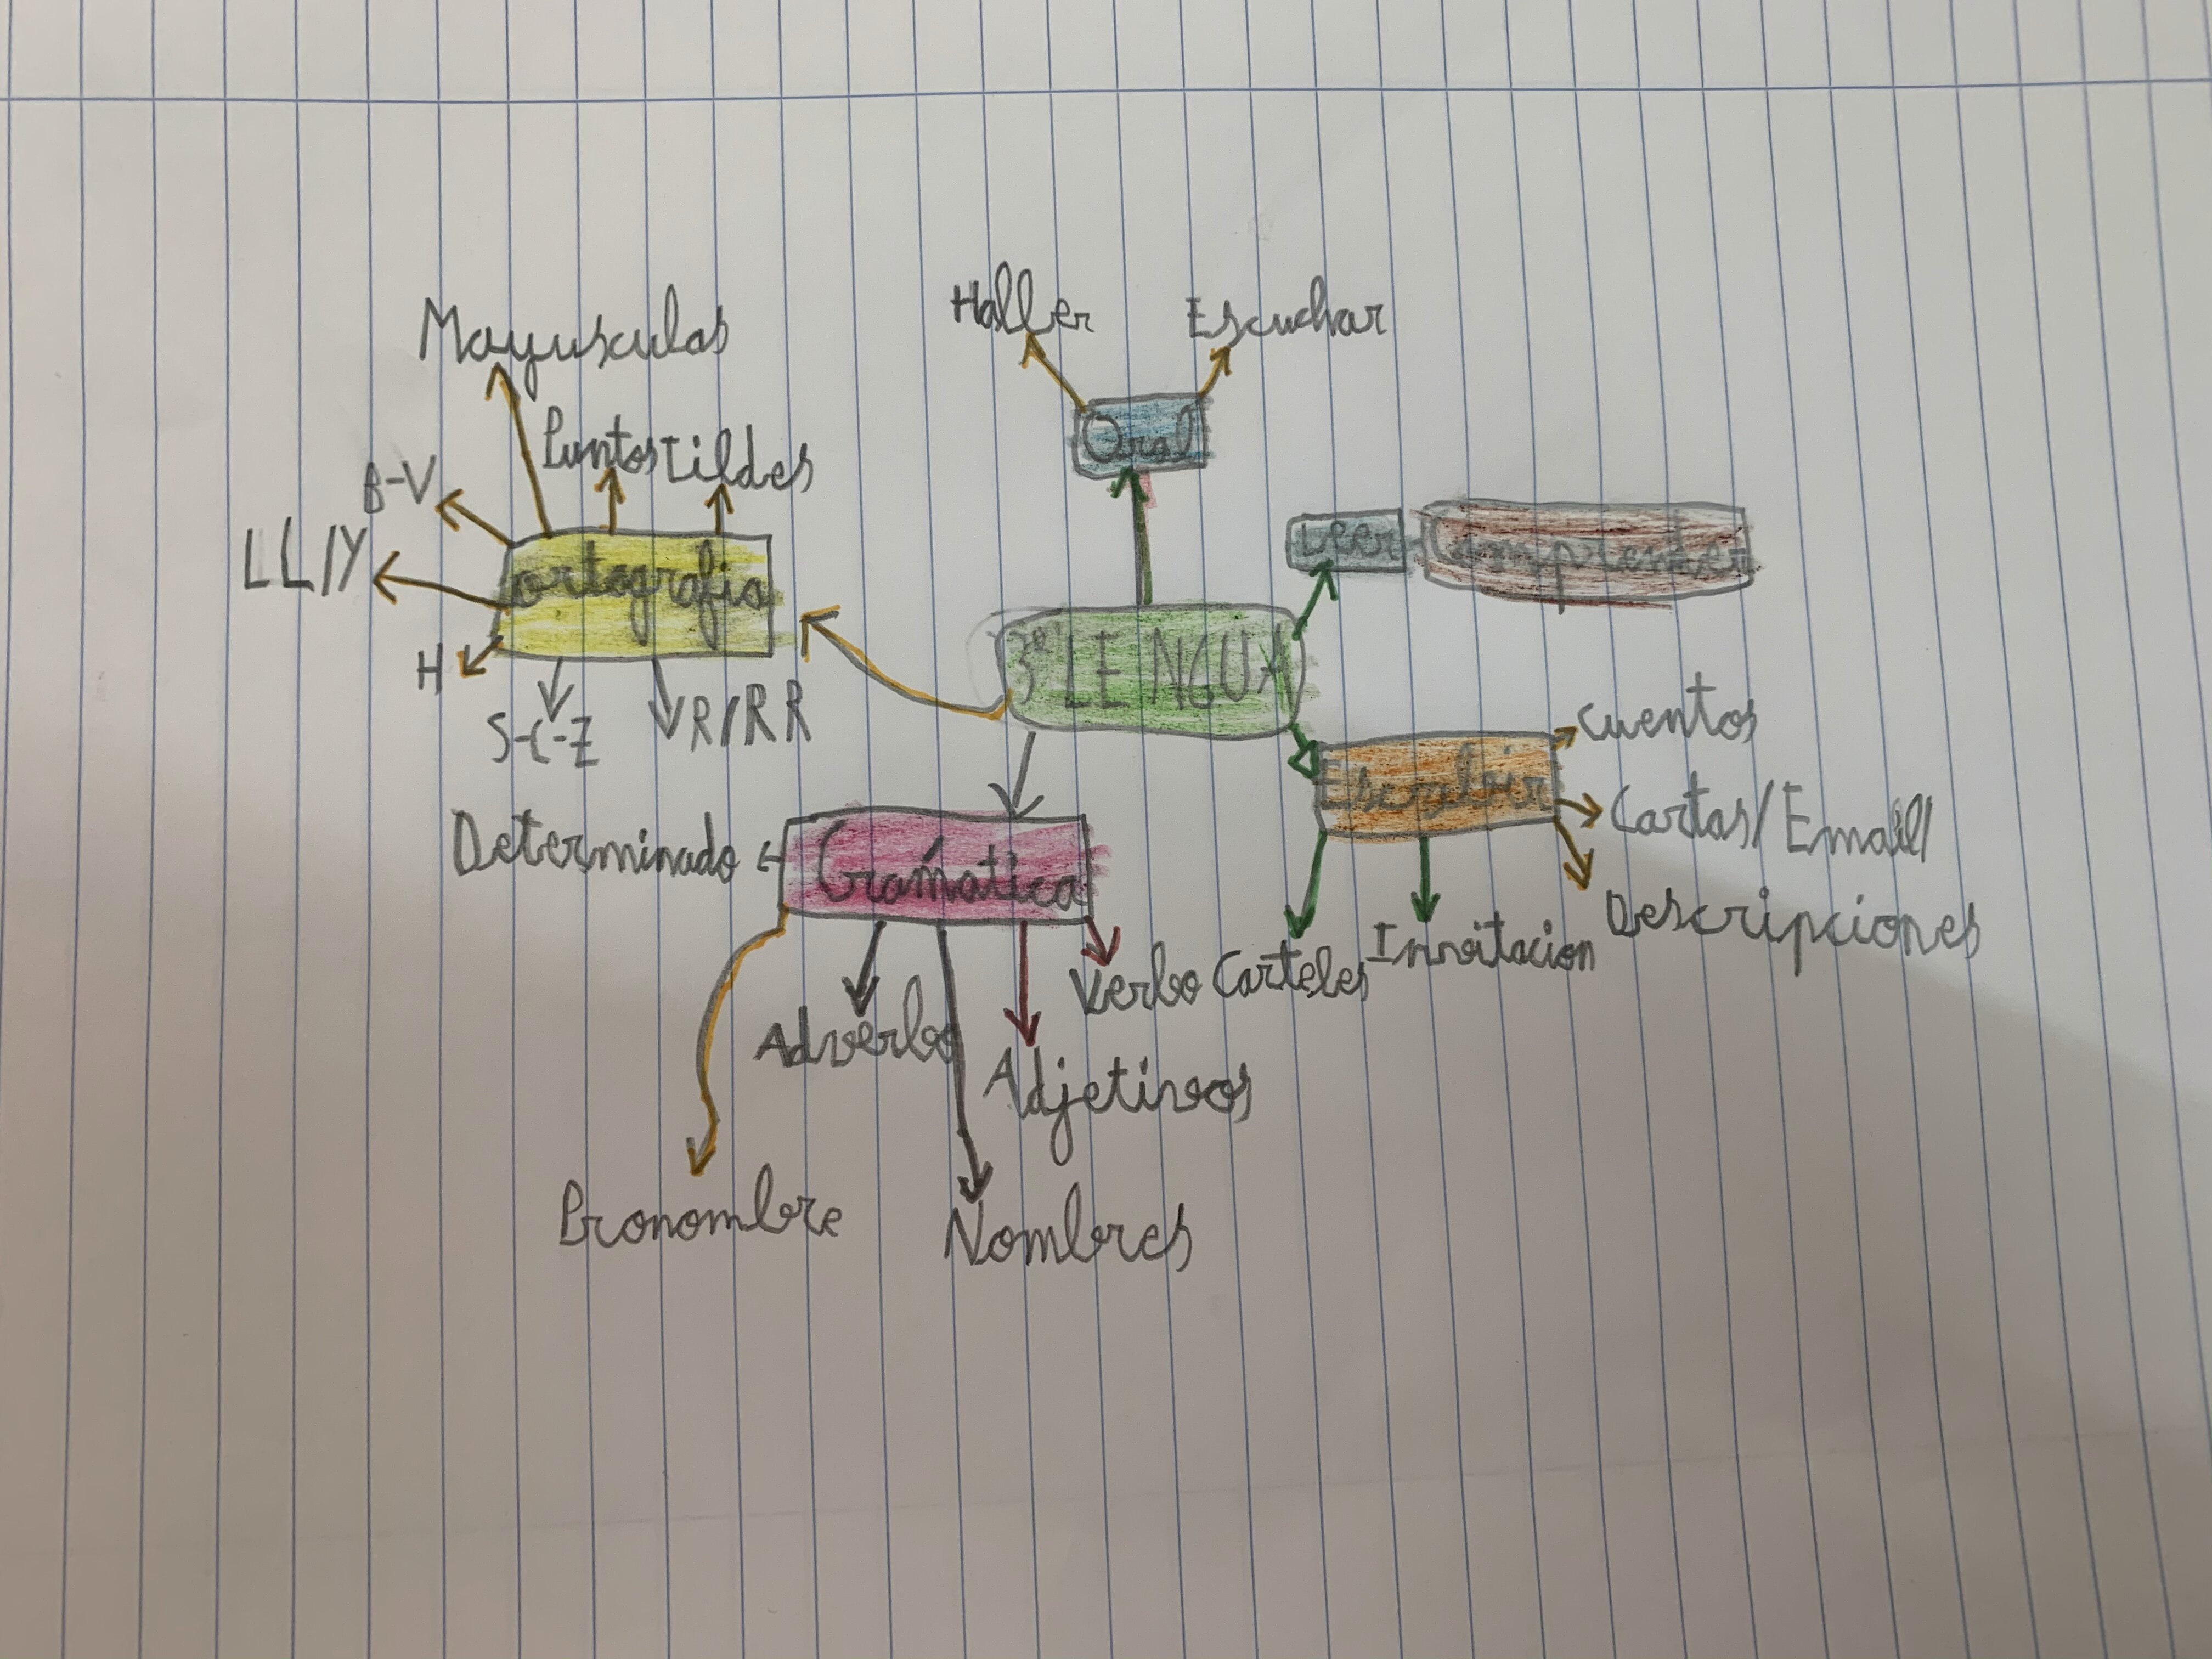 Haller
Escuchar
Mayusculas
Oral
Puntos
Tildes
B-V
LL/Y
ortografia
Leer
Comprender
H
3º LENGUA
S-C-Z
R/RR
Cuentos
Escribir
Cartas/Email/
Determinado
Gramática
Descripciones
Verbo
Carteles
Invitacion
Adverbo
Adjetivos
Pronombre
Nombres